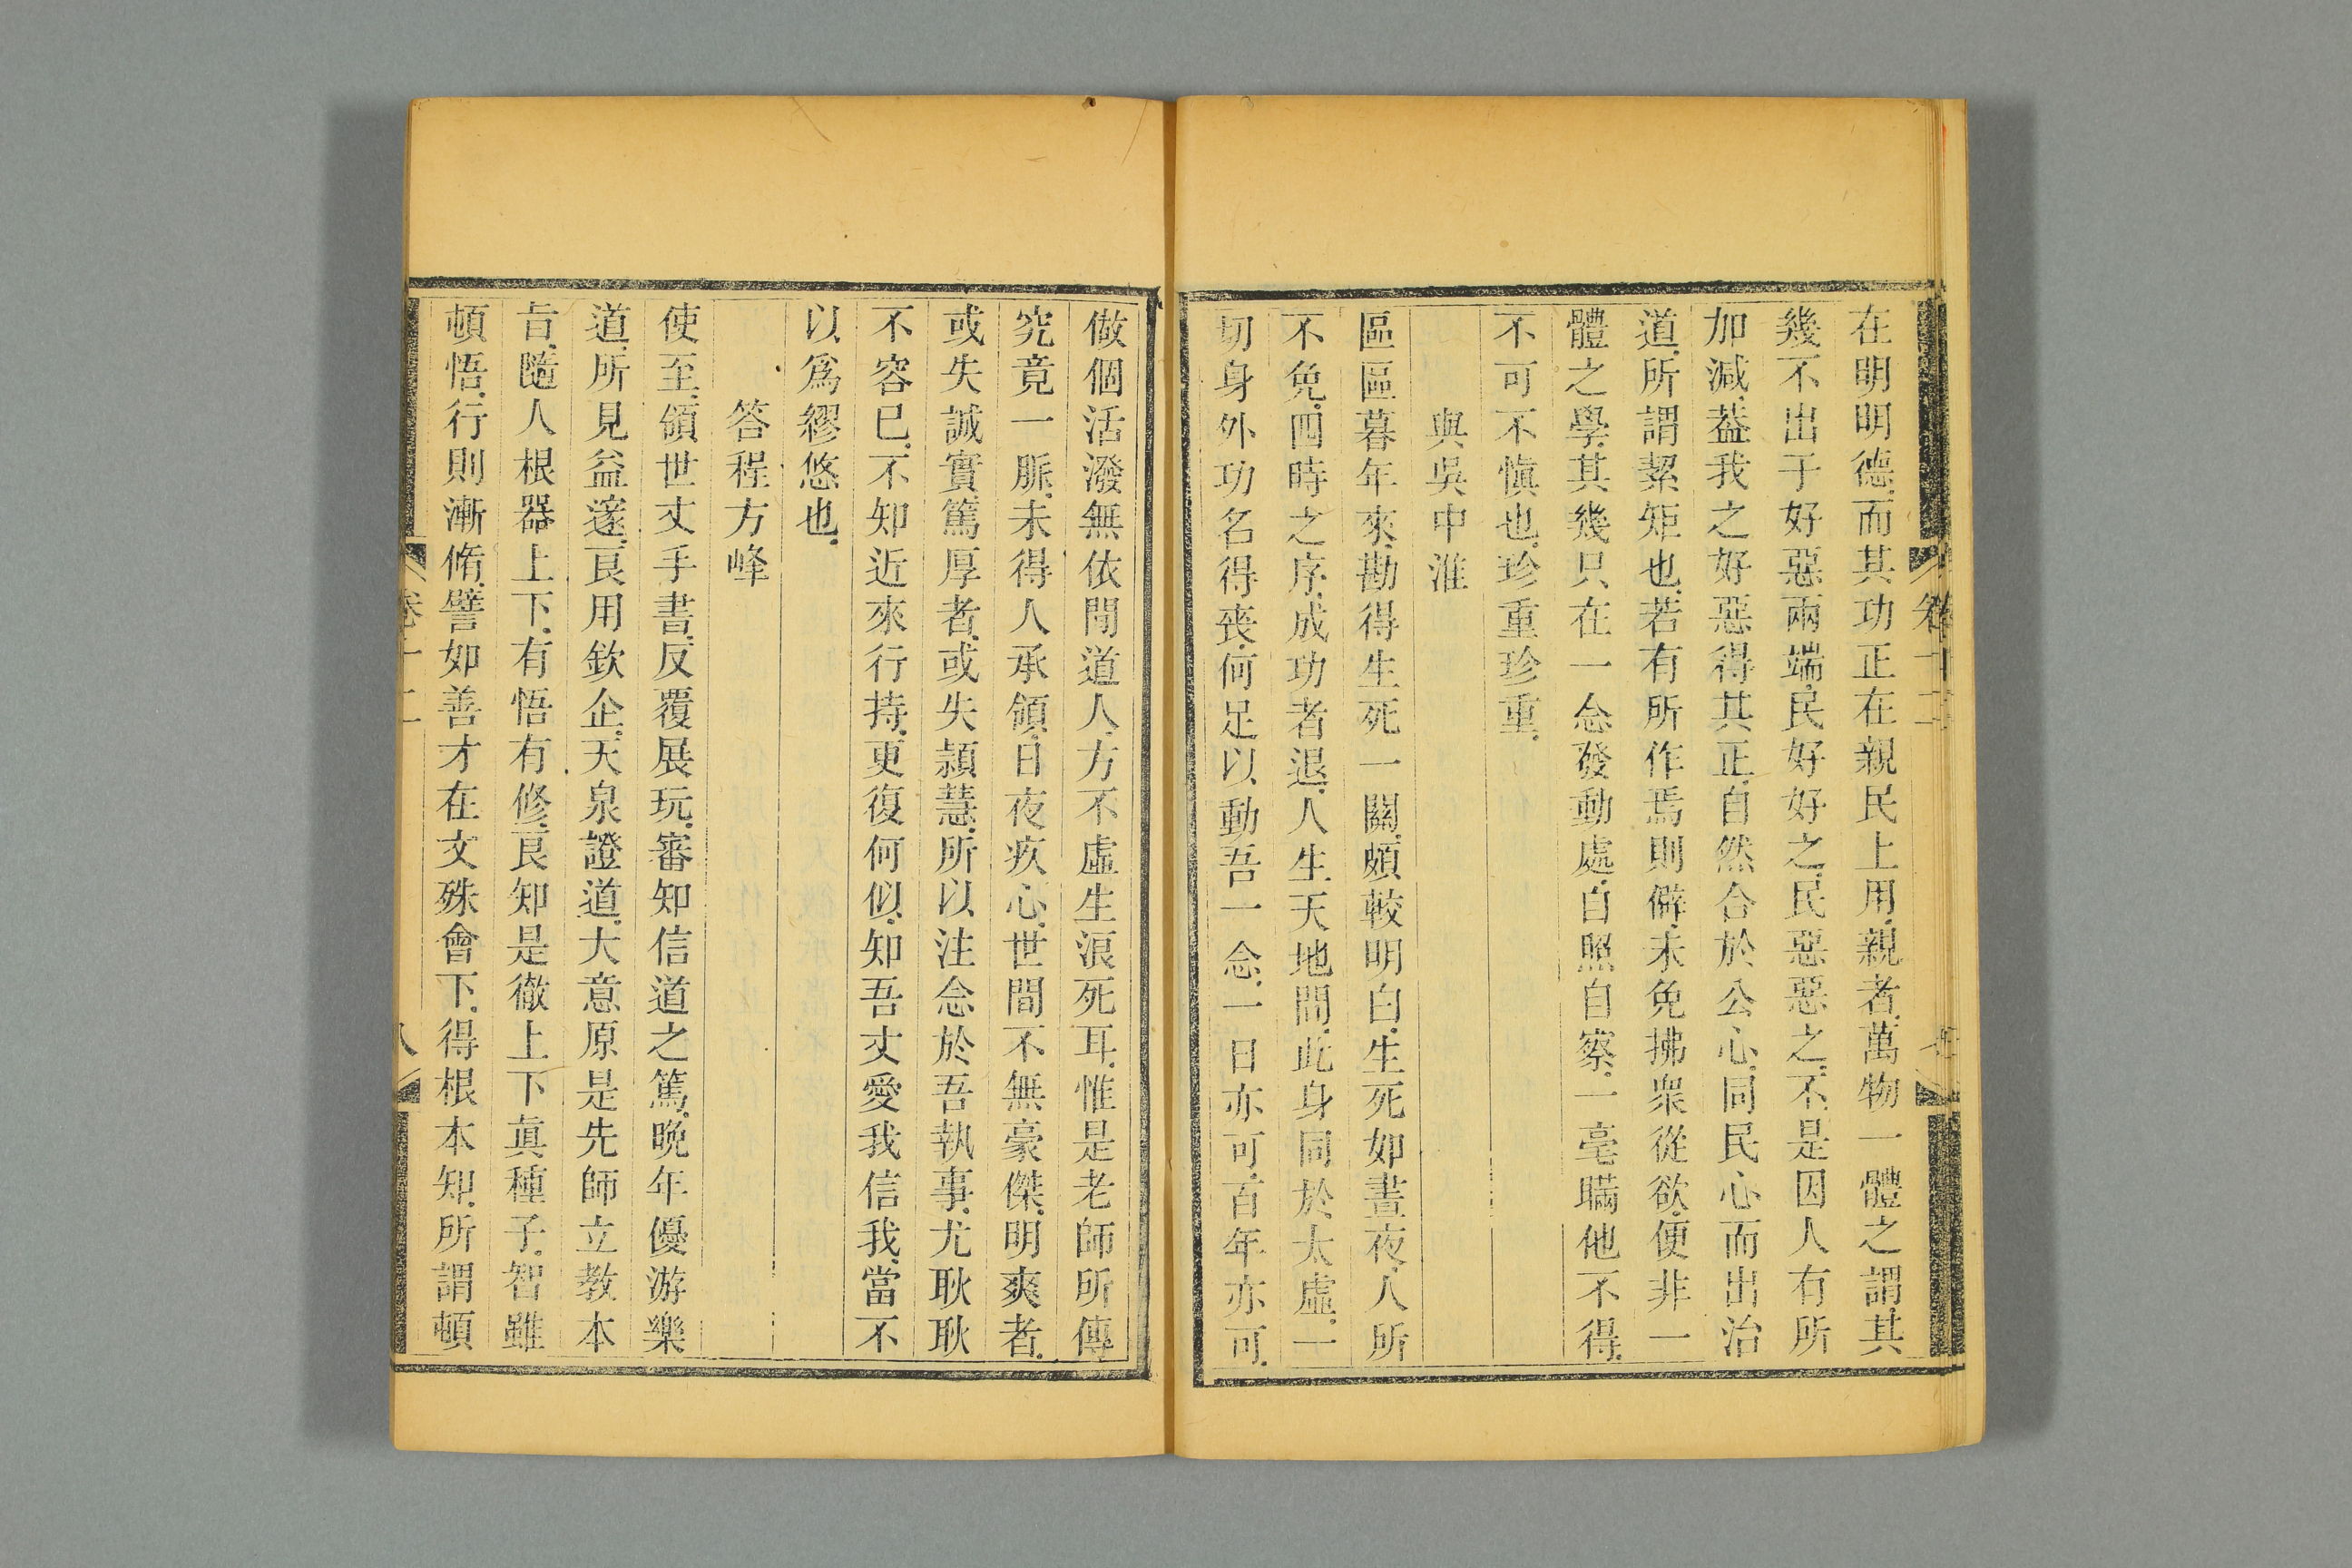 在明明德而其功正在親民上用親者萬物一體之謂其
幾不出于好惡兩端民好好之民惡惡之不是因人有所
加減葢我之好惡得其正自然合於公心同民心而出治
道所謂絜矩也若有所作焉則僻未免拂衆從欲便非一
體之學其幾只在一念發動處自照自察一毫瞞他不得
不可不愼也珍重珍重
與吳中淮
區區暮年來勘得生死一關頗較明白生死如晝夜人所
不免四時之序成功者退人生天地間此身同於太虛一
切身外功名得喪何足以動吾一念一日亦可百年亦可
做個活潑無依閒道人方不虛生浪死耳惟是老師所傳
究竟一脈未得人承領日夜疚心世間不無豪傑明爽者
或失誠實篤厚者或失穎慧所以注念於吾執事尤耿耿
不容已不知近來行持更復何似知吾丈愛我信我當不
以爲繆悠也
答程方峰
使至領世丈手書反覆展玩審知信道之篤晩年優游樂
道所見益邃良用欽企天泉證道大意原是先師立教本
旨隨人根器上下有悟有修良知是徹上下眞種子智雖
頓悟行則漸脩譬如善才在文殊會下得根本知所謂頓
卷十二
八